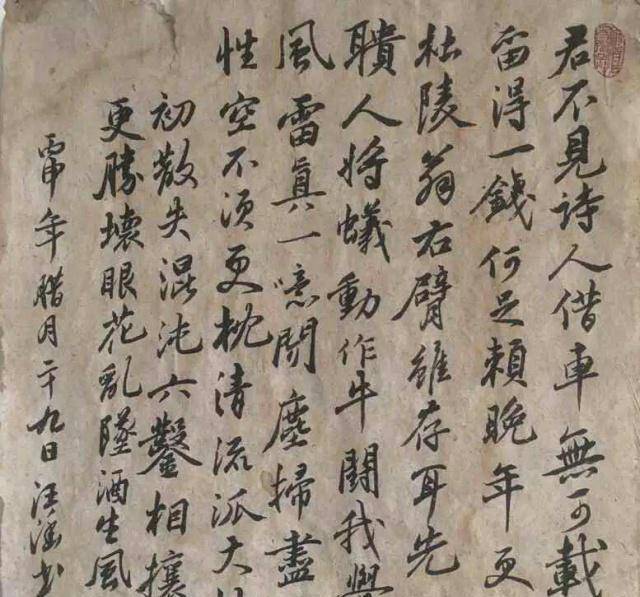 君不見詩人借車無可載
留得一錢何足賴晚年更
杜陵翁右臂雖存耳先
聵人將蟻動作牛鬭我覺
風雷真一噫聞塵掃盡
性空不須更枕清流派大
初散失混沌六鑿相攘
更勝壞眼花亂墜酒生風
丙申年腊月二十九日汪 書